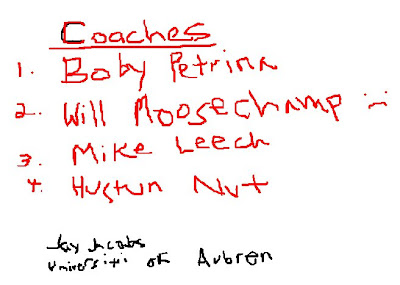 Coaches
1. Boby Petrina
2. Will Moosechamp :-:
3. Mike Leech
4. Hustun Nut
Jay Jacobs
Universiti of Aubren